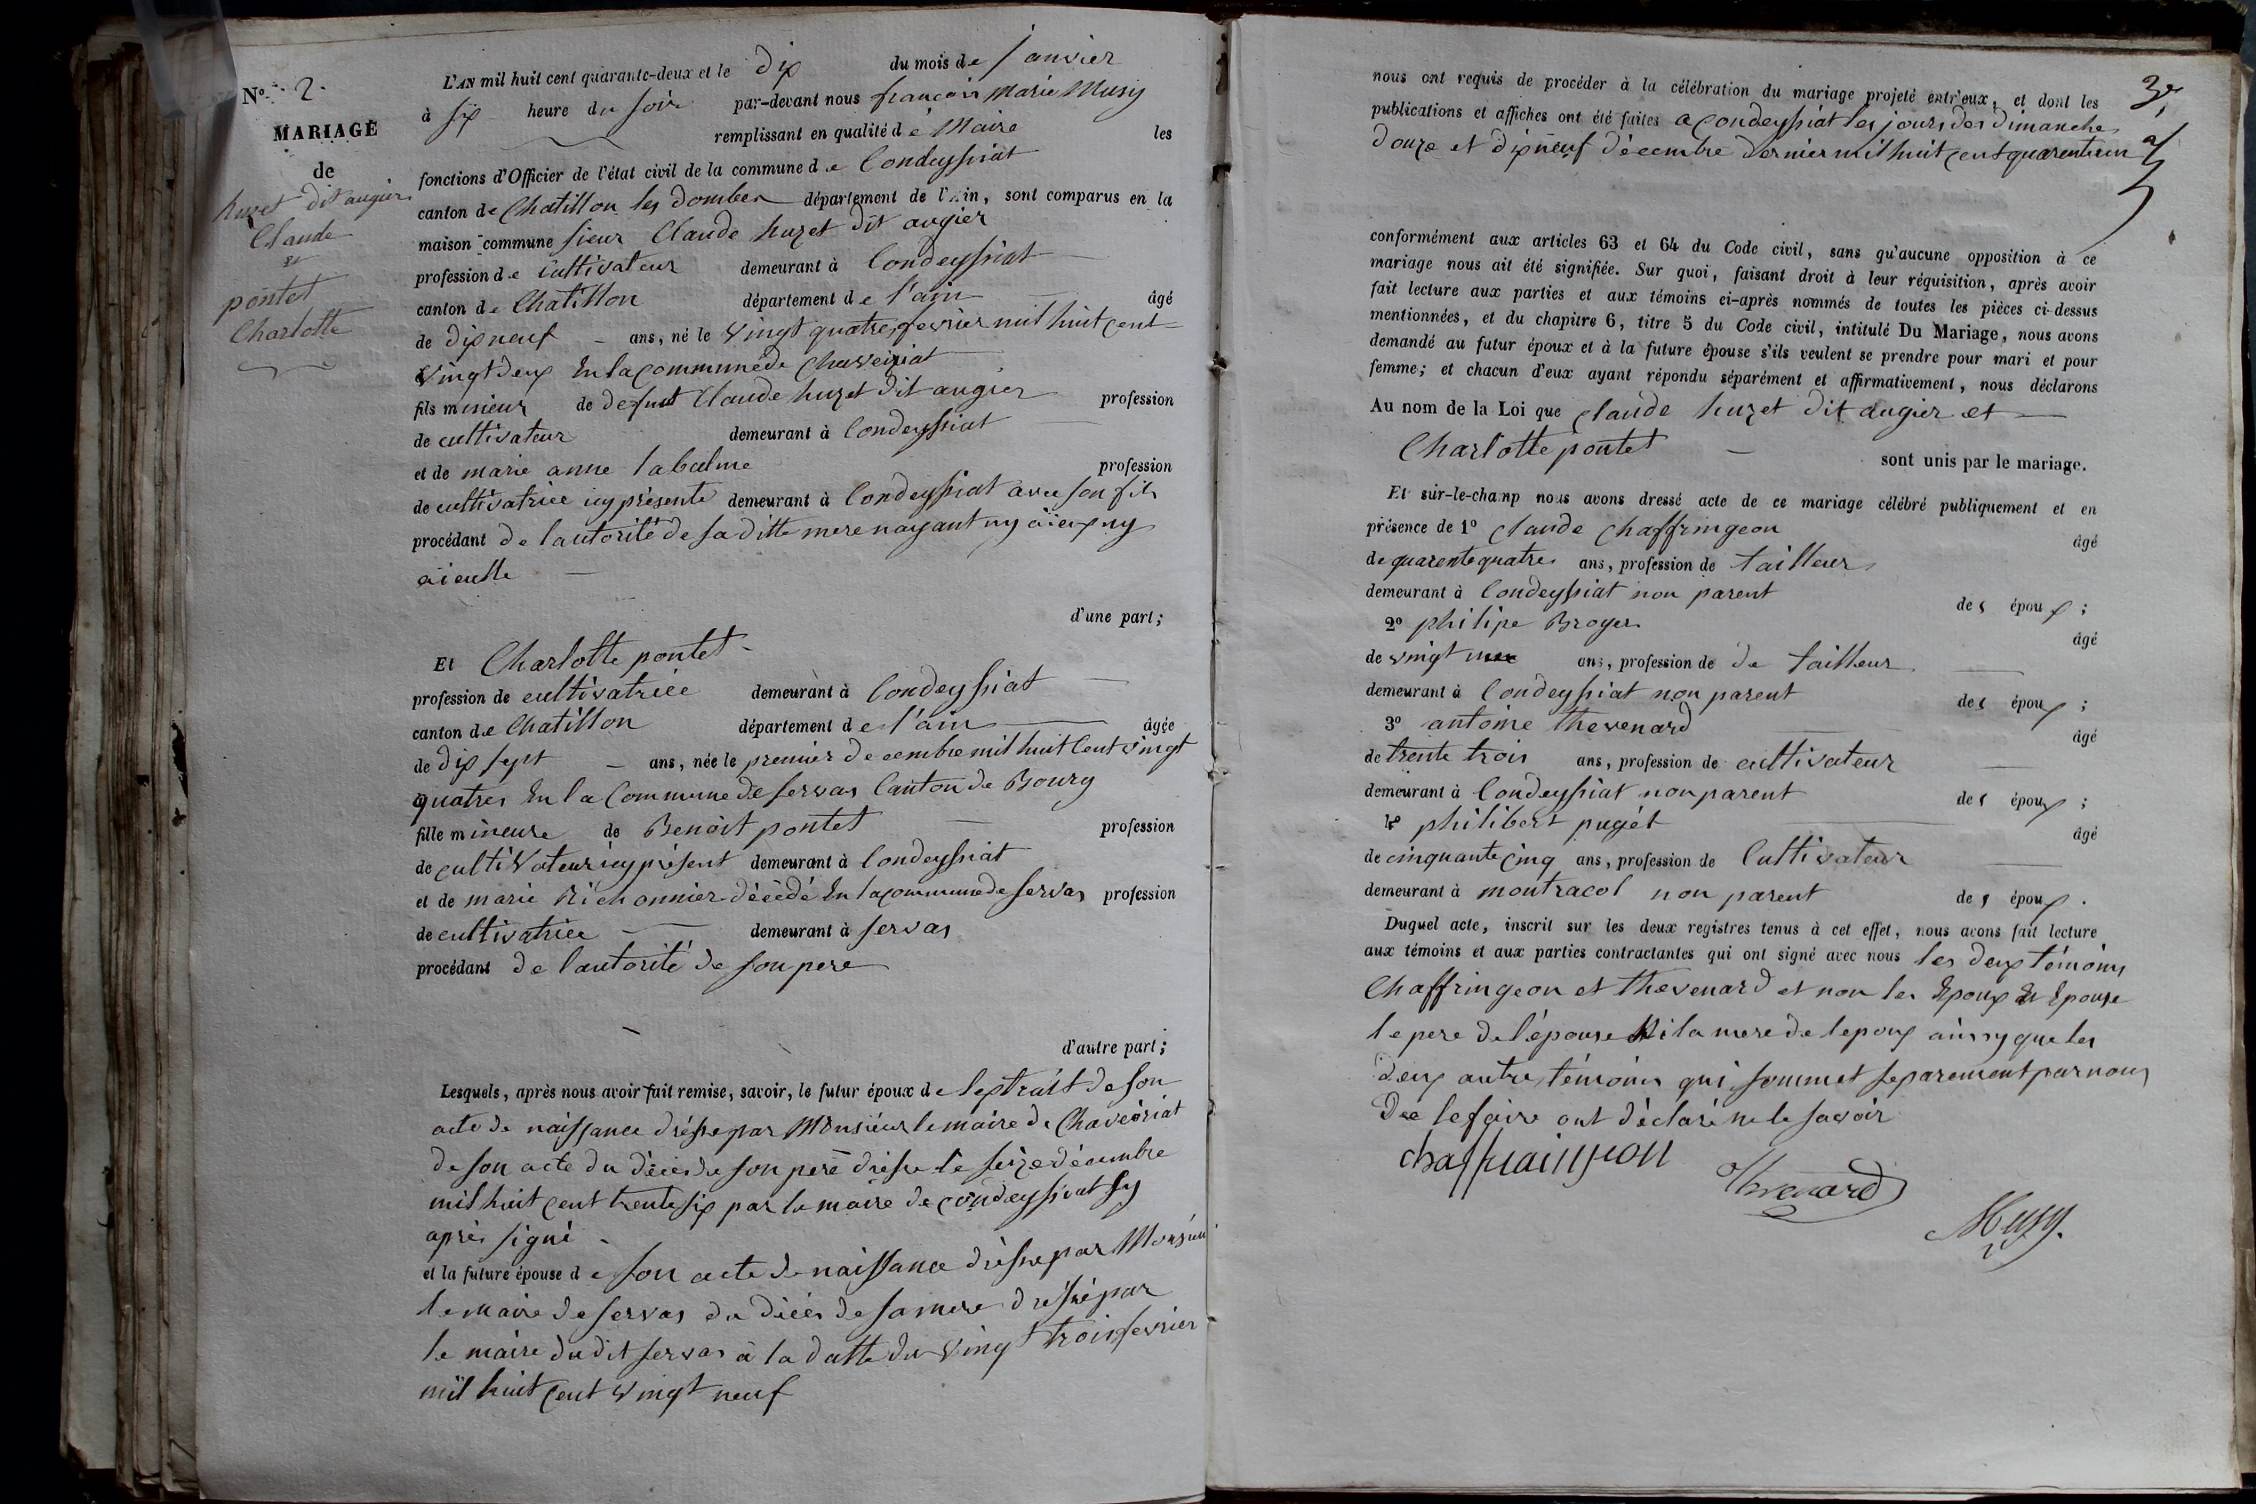 N° 2.
MARIAGE
de
huzet dit augier
Claude
et
pontet
Charlotte
L'AN mil huit cent quarante-deux et le dix du mois de janvier
à six heure du soir par-devant nous françois Marie Musy
remplissant en qualité de Maire les
fonctions d'Officier de l'état civil de la commune de Condeyssiat
canton de Chatillon les dombes département de l'Ain, sont comparus en la
maison commune sieur Claude huzet dit augier
profession de cultivateur demeurant à Condeyssiat
canton de Chatillon département de l'ain âgé
de dix neuf ans, né le vingt quatre fevrier mil huit cent
vingt deux En la commune de Chaveiriat
fils mineur de defunt Claude huzet dit augier profession
de cultivateur demeurant à Condeyssiat
et de marie anne labalme profession
de cultivatrice icy présente demeurant à Condeyssiat avec son fils
procédant de lautorité de sa ditte mere nayant ny aïeux ny
aïeulle
d'une part;
Et Charlotte pontet
profession de cultivatrice demeurant à Condeyssiat
canton de Chatillon département de l'ain âgée
de dix sept ans, née le premier decembre mil huit Cent vingt
quatres En la Commune de servas Canton de Bourg
fille mineure de Benoit pontet profession
de cultivateur icy présent demeurant à Condeyssiat
et de marie Richonnier décédé En la commune de servas profession
de cultivatrice demeurant à servas
procédant de l'autorité de son pere
d'autre part;
Lesquels, après nous avoir fait remise, savoir, le futur époux de lextrait de son
acte de naissance dréssé par Monsieur le maire de Chaveiriat
de son acte du décès de son pere dréssé le seize décembre
mil huit cent trente six par le maire de condeyssiat sy
après signé
et la future épouse de son acte de naissance dréssé par Monsieur
le maire de servas du décès de sa mere dréssé par
le maire du dit servas à la datte du vingt trois fevrier
mil huit cent vingt neuf
3e
nous ont requis de procéder à la célébration du mariage projeté entr'eux, et dont les
publications et affiches ont été faites a Condeyssiat les jours des dimanches
douze et dix neuf décembre dernier mil huit cent quarente un
conformément aux articles 63 et 64 du Code civil, sans qu'aucune opposition à ce
mariage nous ait été signifiée. Sur quoi, faisant droit à leur réquisition, après avoir
fait lecture aux parties et aux témoins ci-après nommés de toutes les pièces ci-dessus
mentionnées, et du chapitre 6, titre 5 du Code civil, intitulé Du Mariage, nous avons
demandé au futur époux et à la future épouse s'ils veulent se prendre pour mari et pour
femme; et chacun d'eux ayant répondu séparément et affirmativement, nous déclarons
Au nom de la Loi que Claude huzet dit augier et
Charlotte pontet sont unis par le mariage.
Et sur-le-champ nous avons dressé acte de ce mariage célébré publiquement et en
présence de 1° Claude Chaffringeon âgé
de quarente quatre ans, profession de tailleur
demeurant à Condeyssiat non parent des époux;
2° philipe Broyer âgé
de vingt ans, profession de de tailleur
demeurant à Condeyssiat non parent des époux;
3° antoine thevenard âgé
de trente trois ans, profession de cultivateur
demeurant à Condeyssiat non parent des époux;
4° philibert pugét âgé
de cinquante cinq ans, profession de Cultivateur
demeurant à montracol non parent des époux.
Duquel acte, inscrit sur les deux registres tenus à cet effet, nous avons fait lecture
aux témoins et aux parties contractantes qui ont signé avec nous les deux témoins
Chaffringeon et thevenard et non les Epoux Et Epouse
le pere de l'épouse Ni la mere de lepoux ainsy que les
deux autres témoins qui sommet separement par nous
De le faire ont déclaré ne le savoir
chaffraingeon
thevenard
Musy.